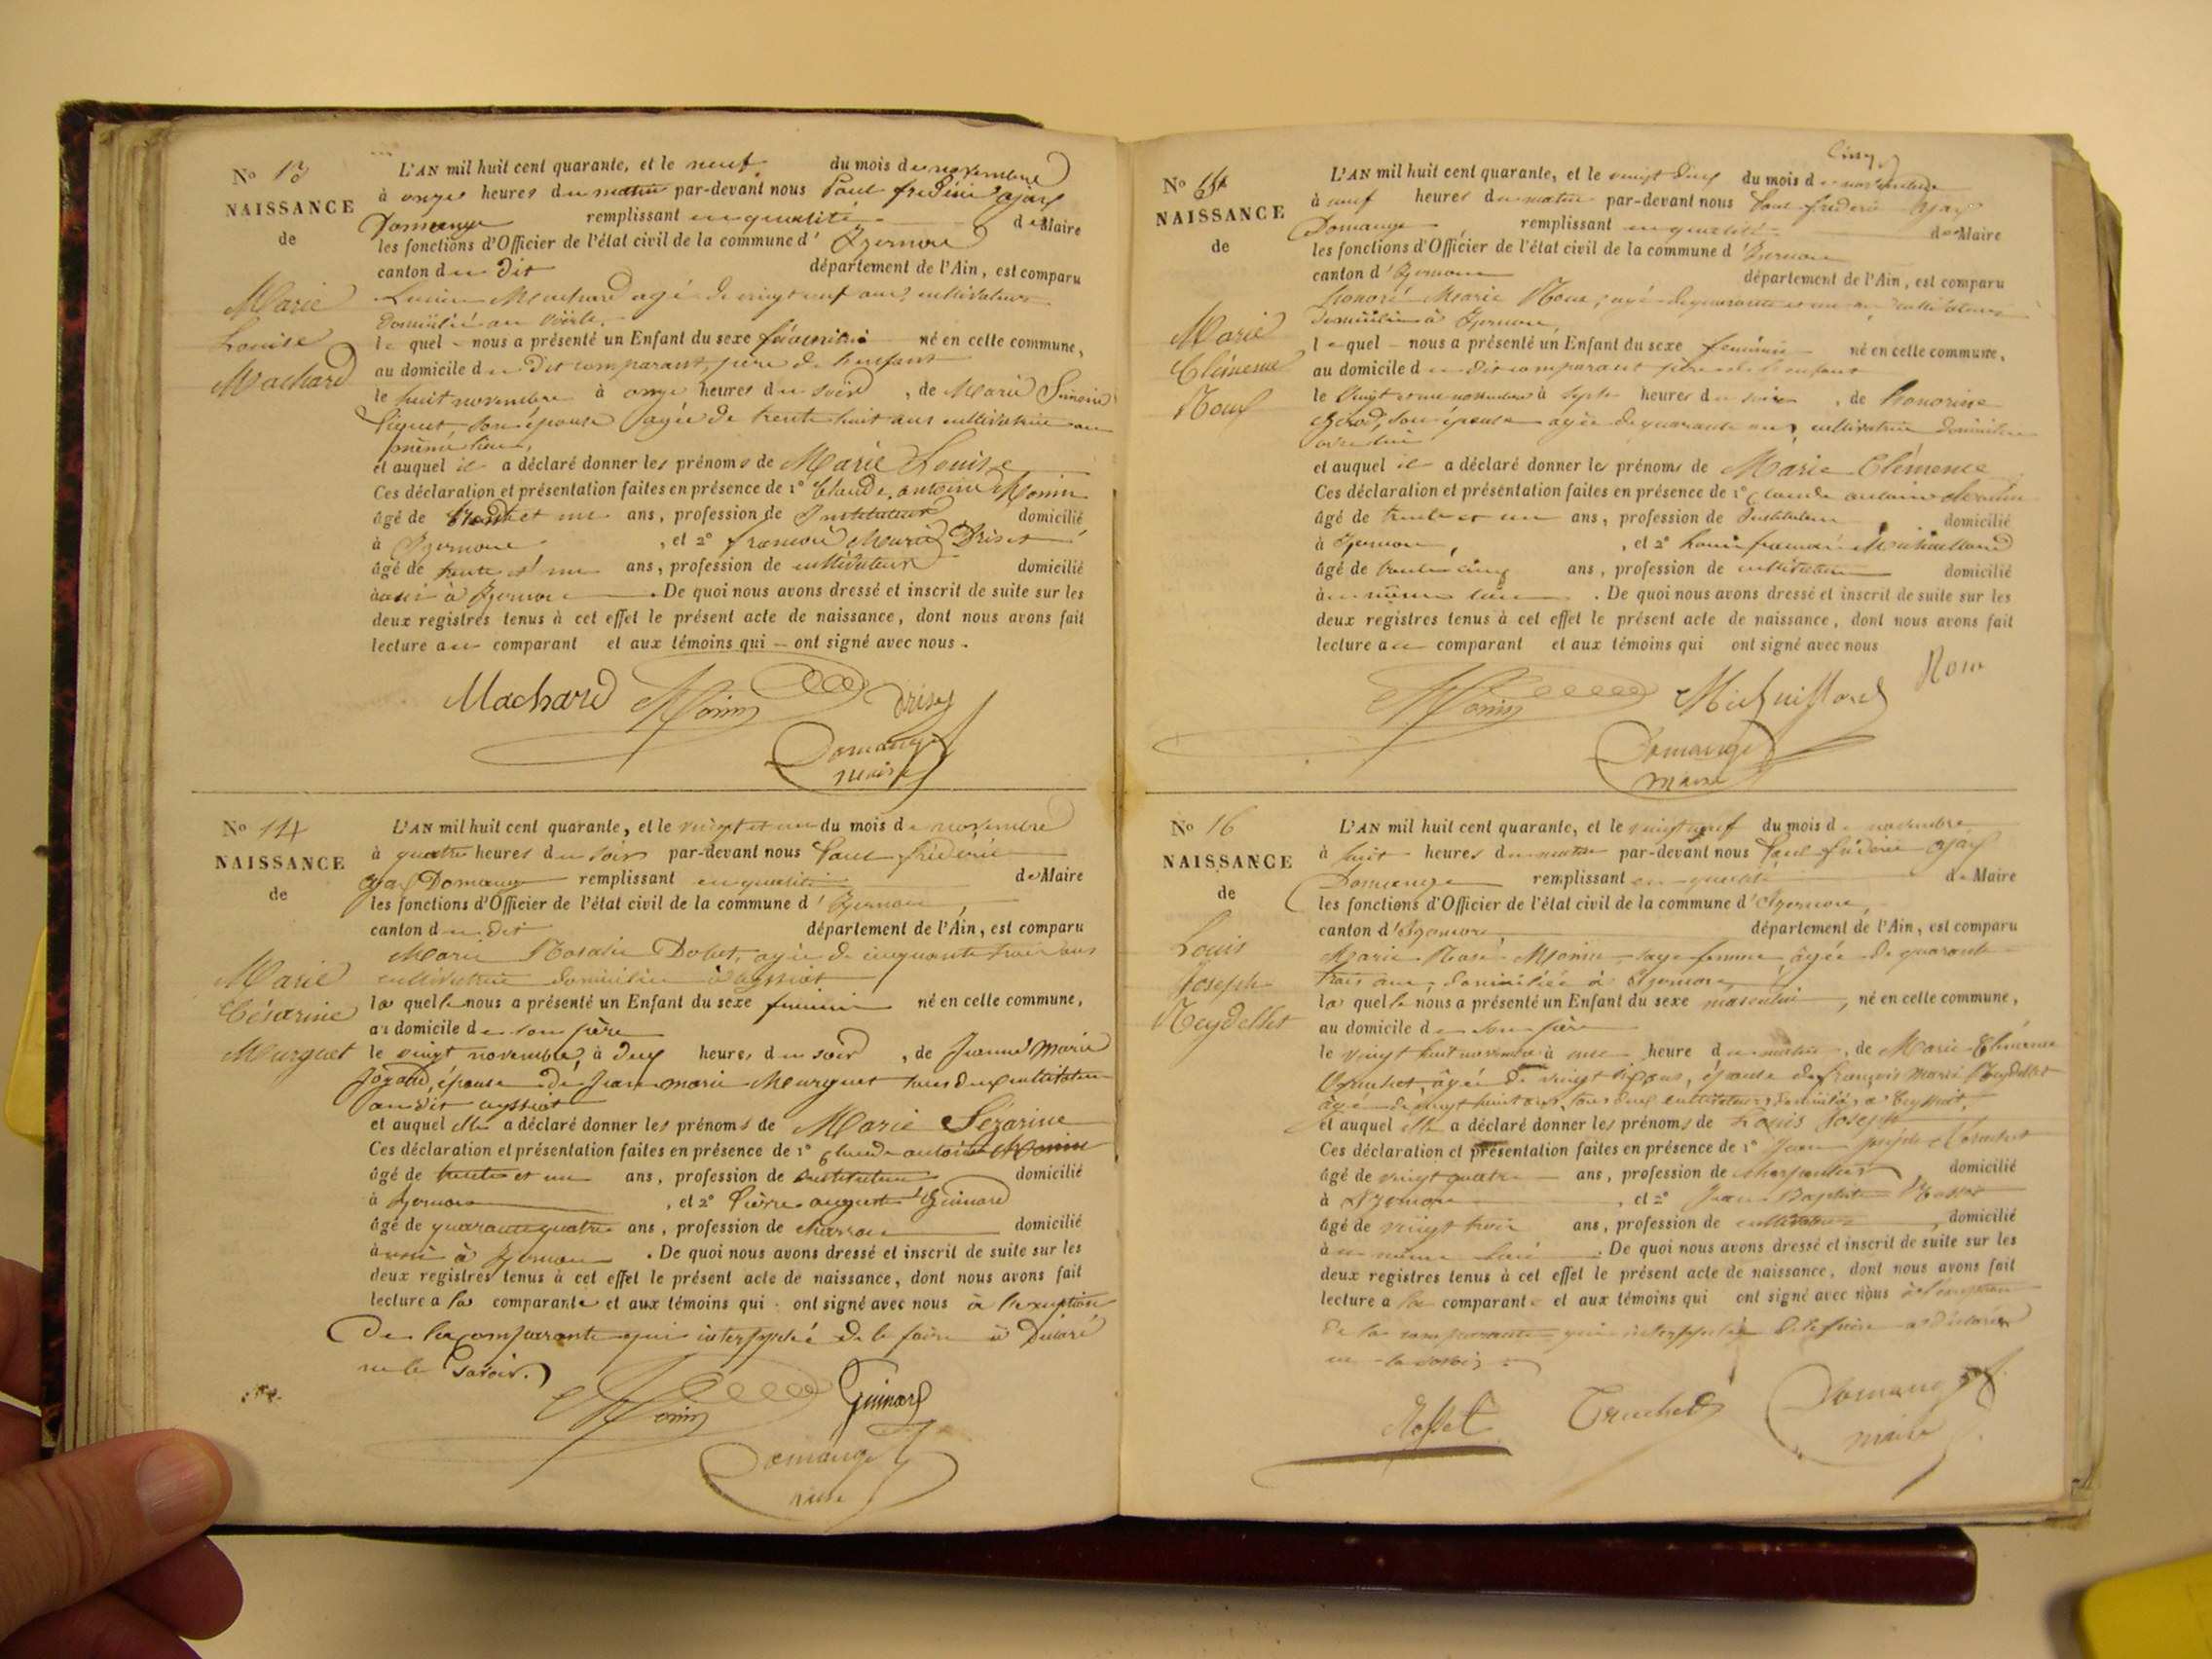 No 13
NAISSANCE
de
Marie
Louise
Machard
L'AN mil huit cent quarante, et le neuf du mois de novembre
à onze heures du matin par-devant nous Paul frédéric ajax
Domange remplissant en qualité de Maire
les fonctions d'Officier de l'état civil de la commune d' Izernore
canton du dit département de l'Ain, est comparu
Machard agé de vingt neuf ans, cultivateur
domicilié au
le quel nous a présenté un Enfant du sexe féminin né en cette commune,
au domicile du dit comparant, père de l'enfant
le huit novembre à onze heures du soir, de Marie
son épouse agée de trente huit ans cultivatrice au
même lieu,
et auquel il a déclaré donner les prénoms de Marie Louise
Ces déclaration et présentation faites en présence de 1° Claude antoine Monin
âgé de trente et un ans, profession de Instituteur domicilié
à Izernore, et 2° françois Marie Driset
âgé de trente et un ans, profession de cultivateur domicilié
aussi à Izernore. De quoi nous avons dressé et inscrit de suite sur les
deux registres tenus à cet effet le présent acte de naissance, dont nous avons fait
lecture au comparant et aux témoins qui ont signé avec nous.
Machard Monin
Domange
maire
No 14
NAISSANCE
de
Marie
Césarine
Murguet
L'AN mil huit cent quarante, et le vingt et un du mois de novembre
à quatre heures du soir par-devant nous Paul fréderic
ajax Domange remplissant en qualité de Maire
les fonctions d'Officier de l'état civil de la commune d' Izernore,
canton du dit département de l'Ain, est comparu
Marie Rosalie agée de cinquante trois ans
cultivatrice domiciliée à
la quelle nous a présenté un Enfant du sexe feminin né en cette commune,
au domicile de son père
le vingt novembre à deux heures du soir, de Jeanne Marie
épouse de Jean marie Murguet tous deux cultivateurs
au dit
et auquel elle a déclaré donner les prénoms de Marie Sézarine
Ces déclaration et présentation faites en présence de 1° Claude antoine Monin
âgé de trente et un ans, profession de Instituteur domicilié
à Izernore, et 2° Pierre auguste Guinard
âgé de quarante quatre ans, profession de charron domicilié
aussi à Izernore. De quoi nous avons dressé et inscrit de suite sur les
deux registres tenus à cet effet le présent acte de naissance, dont nous avons fait
lecture a la comparante et aux témoins qui ont signé avec nous à l'exeption
de la comparante qui interpellée de le faire a déclaré
ne le savoir.
Monin Guinard
Domange
maire
No
NAISSANCE
de
Marie
Clémence
L'AN mil huit cent quarante, et le vingt deux du mois de novembre
à neuf heures du matin par-devant nous Paul fréderic ajax
Domange remplissant en qualité de Maire
les fonctions d'Officier de l'état civil de la commune d'Izernore
canton d'Izernore département de l'Ain, est comparu
honoré Marie agé de quarante et un ans cultivateur
domicilié à Izernore,
le quel nous a présenté un Enfant du sexe feminin né en cette commune,
au domicile du dit comparant père de l'enfant
le vingt et un novembre à sept heures du soir, de honorine
son épouse agée de quarante ans, cultivatrice domiciliée
et auquel il a déclaré donner les prénoms de Marie Clémence
Ces déclaration et présentation faites en présence de 1° Claude antoine Monin
âgé de trente et un ans, profession de Instituteur domicilié
à Izernore, et 2° Louis françois
âgé de trente cinq ans, profession de cultivateur domicilié
au même lieu. De quoi nous avons dressé et inscrit de suite sur les
deux registres tenus à cet effet le présent acte de naissance, dont nous avons fait
lecture au comparant et aux témoins qui ont signé avec nous
Monin
Domange
maire
No 16
NAISSANCE
de
Louis
Joseph
Reydellet
L'AN mil huit cent quarante, et le vingt neuf du mois de novembre
à huit heures du matin par-devant nous Paul fréderic ajax
Domange remplissant en qualité de Maire
les fonctions d'Officier de l'état civil de la commune d'Izernore,
canton d'Izernore, département de l'Ain, est comparu
Marie Monin sage femme, âgée de quarante
trois ans, domiciliée à Izernore,
la quelle nous a présenté un Enfant du sexe masculin, né en cette commune,
au domicile de son père
le vingt huit novembre à une heure du matin, de Marie Clémence
Truchet, âgée de vingt six ans, épouse de françois marie Reydellet
âgé de vingt huit ans, tous deux cultivateurs, domiciliés à
et auquel elle a déclaré donner les prénoms de Louis Joseph
Ces déclaration et présentation faites en présence de 1° Jean joseph Truchet
âgé de vingt quatre ans, profession de charpentier, domicilié
à Izernore, et 2° Jean Baptiste Rosset
âgé de vingt trois ans, profession de cultivateur, domicilié
au même lieu. De quoi nous avons dressé et inscrit de suite sur les
deux registres tenus à cet effet le présent acte de naissance, dont nous avons fait
lecture a la comparante et aux témoins qui ont signé avec nous à l'exeption
de la comparante qui interpellée de le faire a déclaré
ne le savoir.
Rosset Truchet Domange
maire